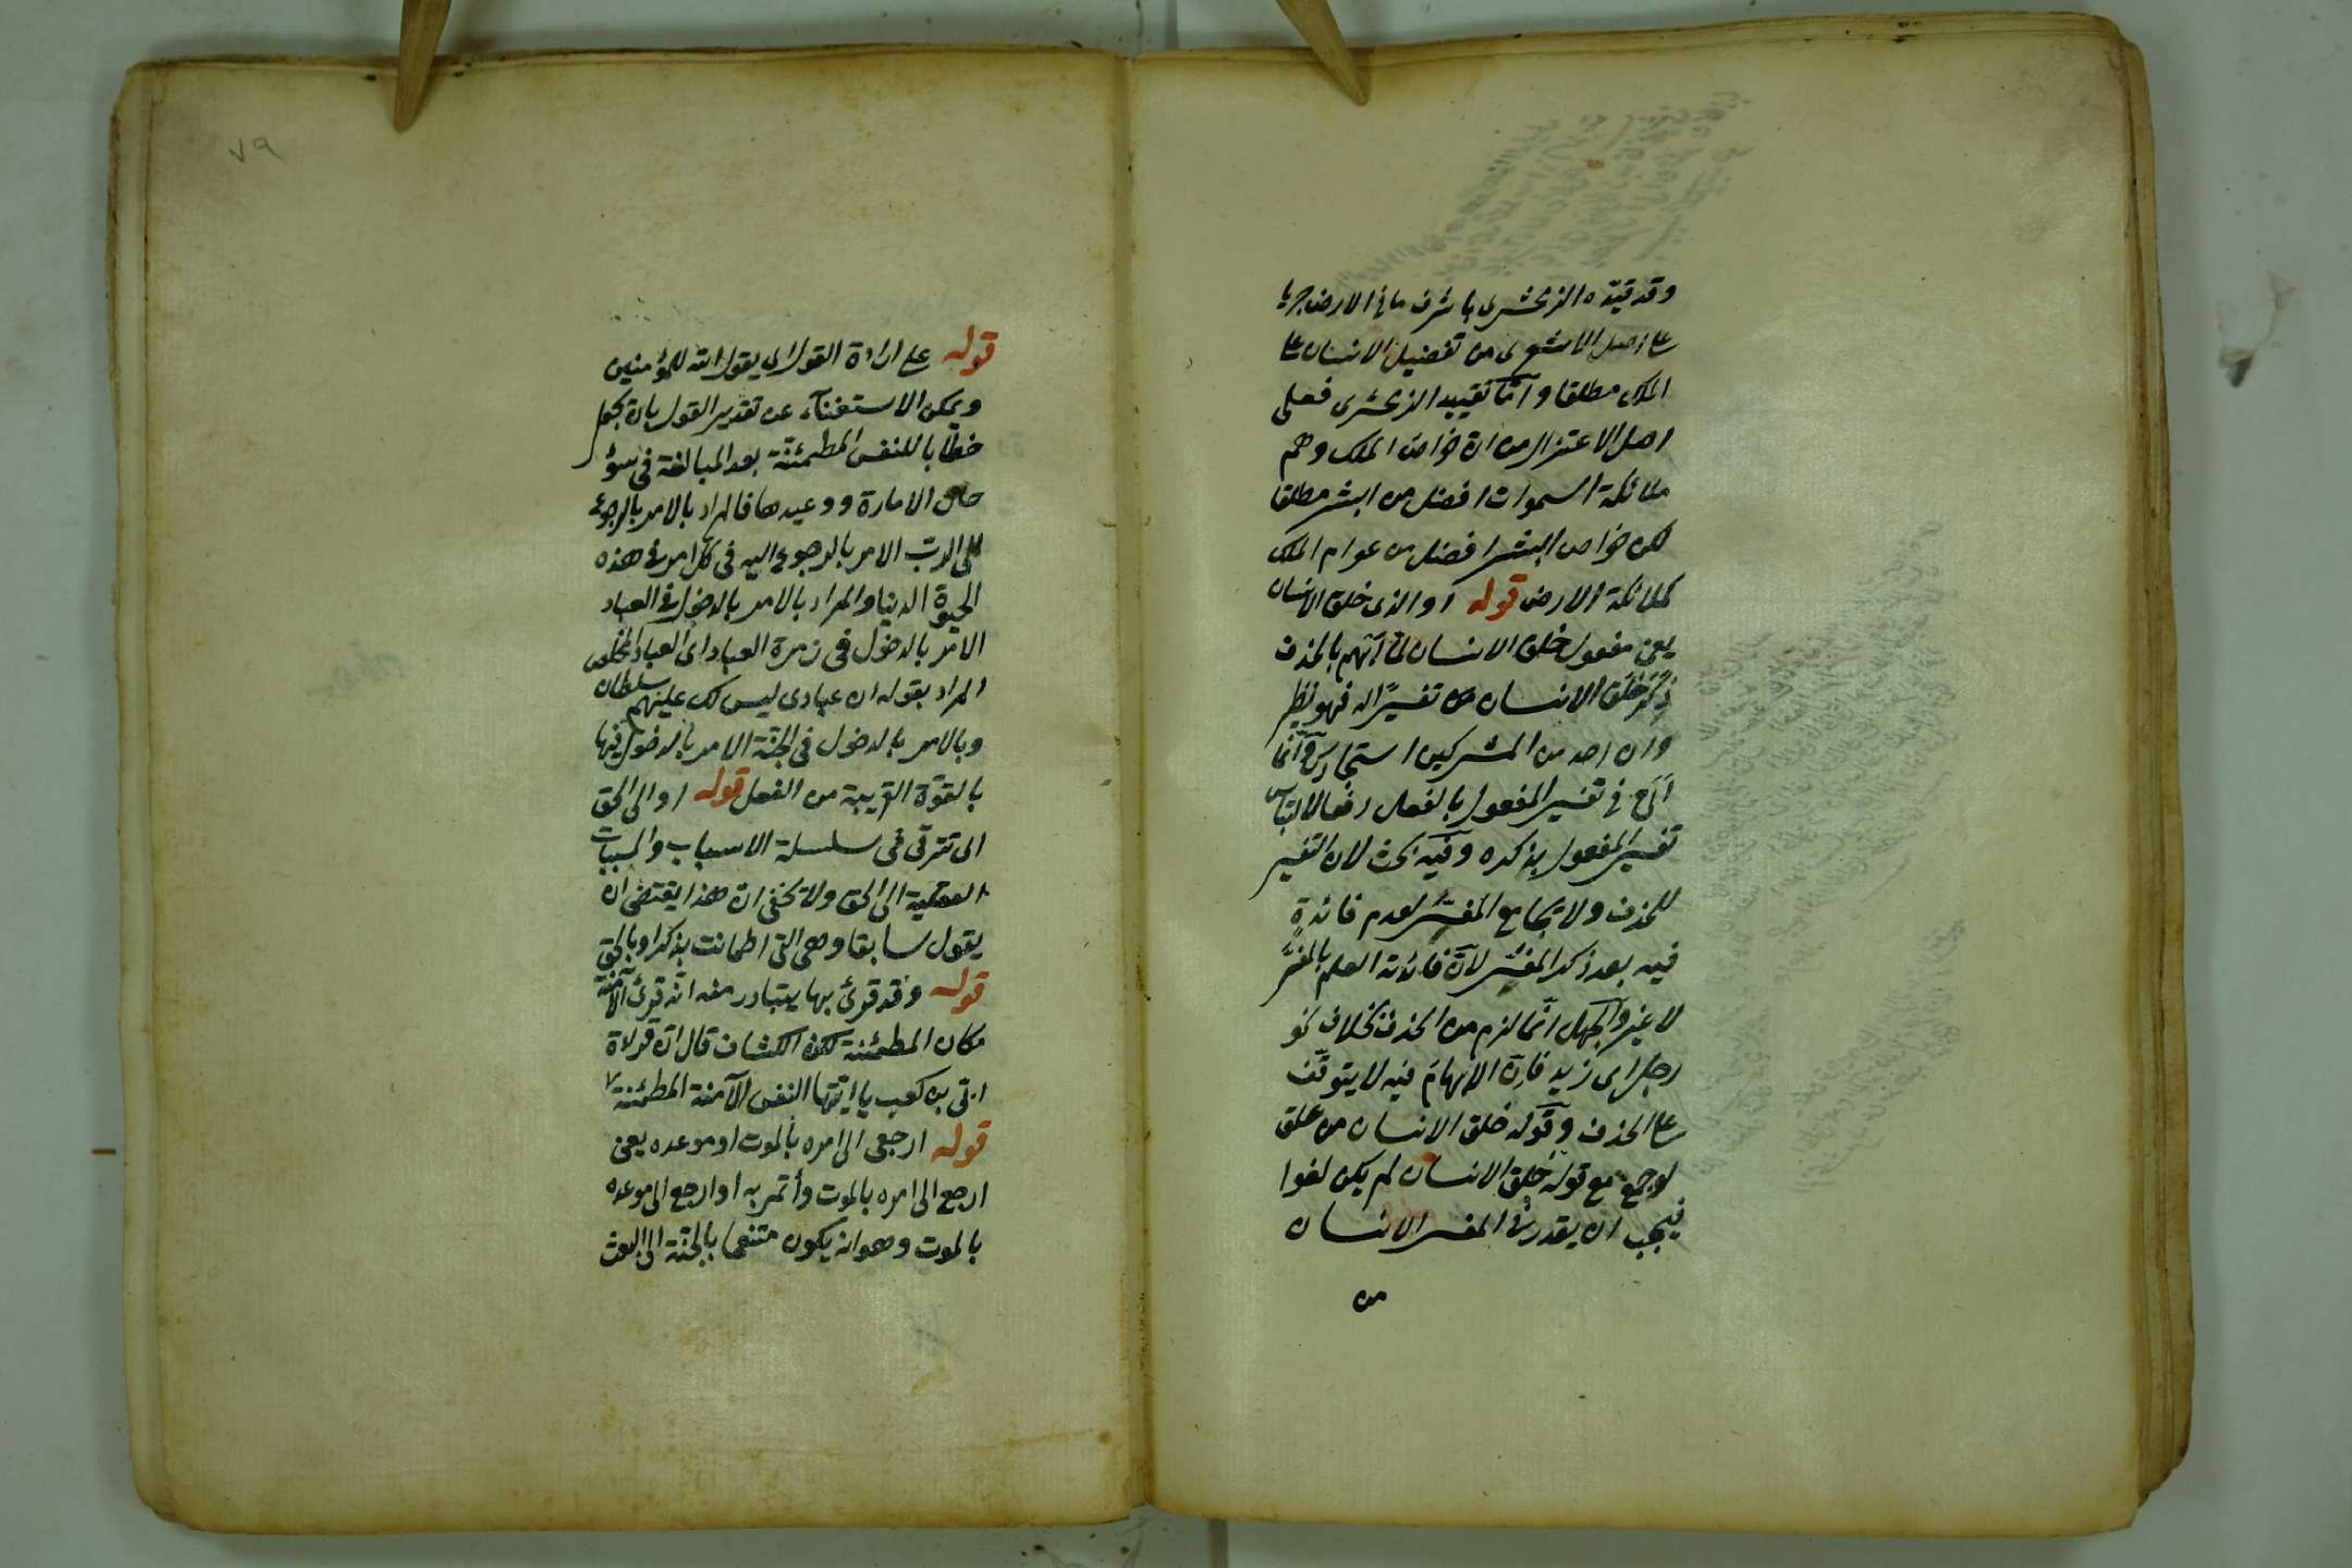 وقد قيّده الزمخشرى باشرف ما فى الارض جريا
على اصل الاشعرى من تفضيل الانسان على
الملك مطلقا وآمّا تقييد الزمخشرى فعلى
اهل الاعتزال من ان خواص الملك وهم
ملائكة السموات افضل من البشر مطلقا
لكن خواص البشر افضل من عوام الملك
كملائكة الارض قوله اوالذى خلق الانسان
يعنى مفعول خلق الانسان لمّا ابهم بالحذف
ذُكر خلق الانسان تفسيرًا له فهو نظير
وان احد من المشركين استجارك وآنما
فى تفسير المفعول بالفعل دفعا لالتباس
تفسير المفعول بذكره وفيه بحث لان التفسير
للحذف ولا يجامع المفسَّر لعدم فائدةٍ
فيه بعد ذكر المفسَّر لانّ فائدته العلم بالمفسَّر
لا غير والجهل انّما لزم من الحذف بخلاف نحو
رجل اى زيد فانّ الابهام فيه لا يتوقف
على الحذف وقوله خلق الانسان من علق
لو جمع مع قوله خلق الانسان لم يكن لغوا
فيجب ان يقدر فى المفسر الانسان
من
٧٩
قوله على ارادة القول اى يقول الله للمؤمنين
ويمكن الاستغناء عن تقدير القول بان يجعل
خطابا للنفس المطمئنة بعد المبالغة فى سوء
حال الامارة ووعيدها فالمراد بالامر بالرجوع
الى الرب الامر بالرجوع اليه فى كل امر فى هذه
الحيوة الدنيا والمراد بالامر بالدخول فى العباد
الامر بالدخول فى زمرة العباد اى العباد المخلص
المراد بقوله ان عبادى ليس لك عليهم سلطان
وبالامر بالدخول فى الجنّة الامر بالدخول فيها
بالقوّة القريبة من الفعل قوله او الى الحق
اى تترقى فى سلسلة الاسباب والمسببات
الى الحق ولا يخفى ان هذا يقتضى ان
يقول سابقا وهى التى اطمانت بذكر او بالحق
قوله وقد قرئ بها يتبادر منه انّه قرئ الآمنة
مكان المطمئنة لكن الكشاف قال ان قراءة
ابىّ بن كعب يا ايّتها النفس الآمنة المطمئنة
قوله ارجعى الى امره بالموت او موعده يعنى
ارجع الى امره بالموت وأتمر به او ارجع الى موعده
بالموت وهو ان يكون متنعما بالجنّة الى البعث